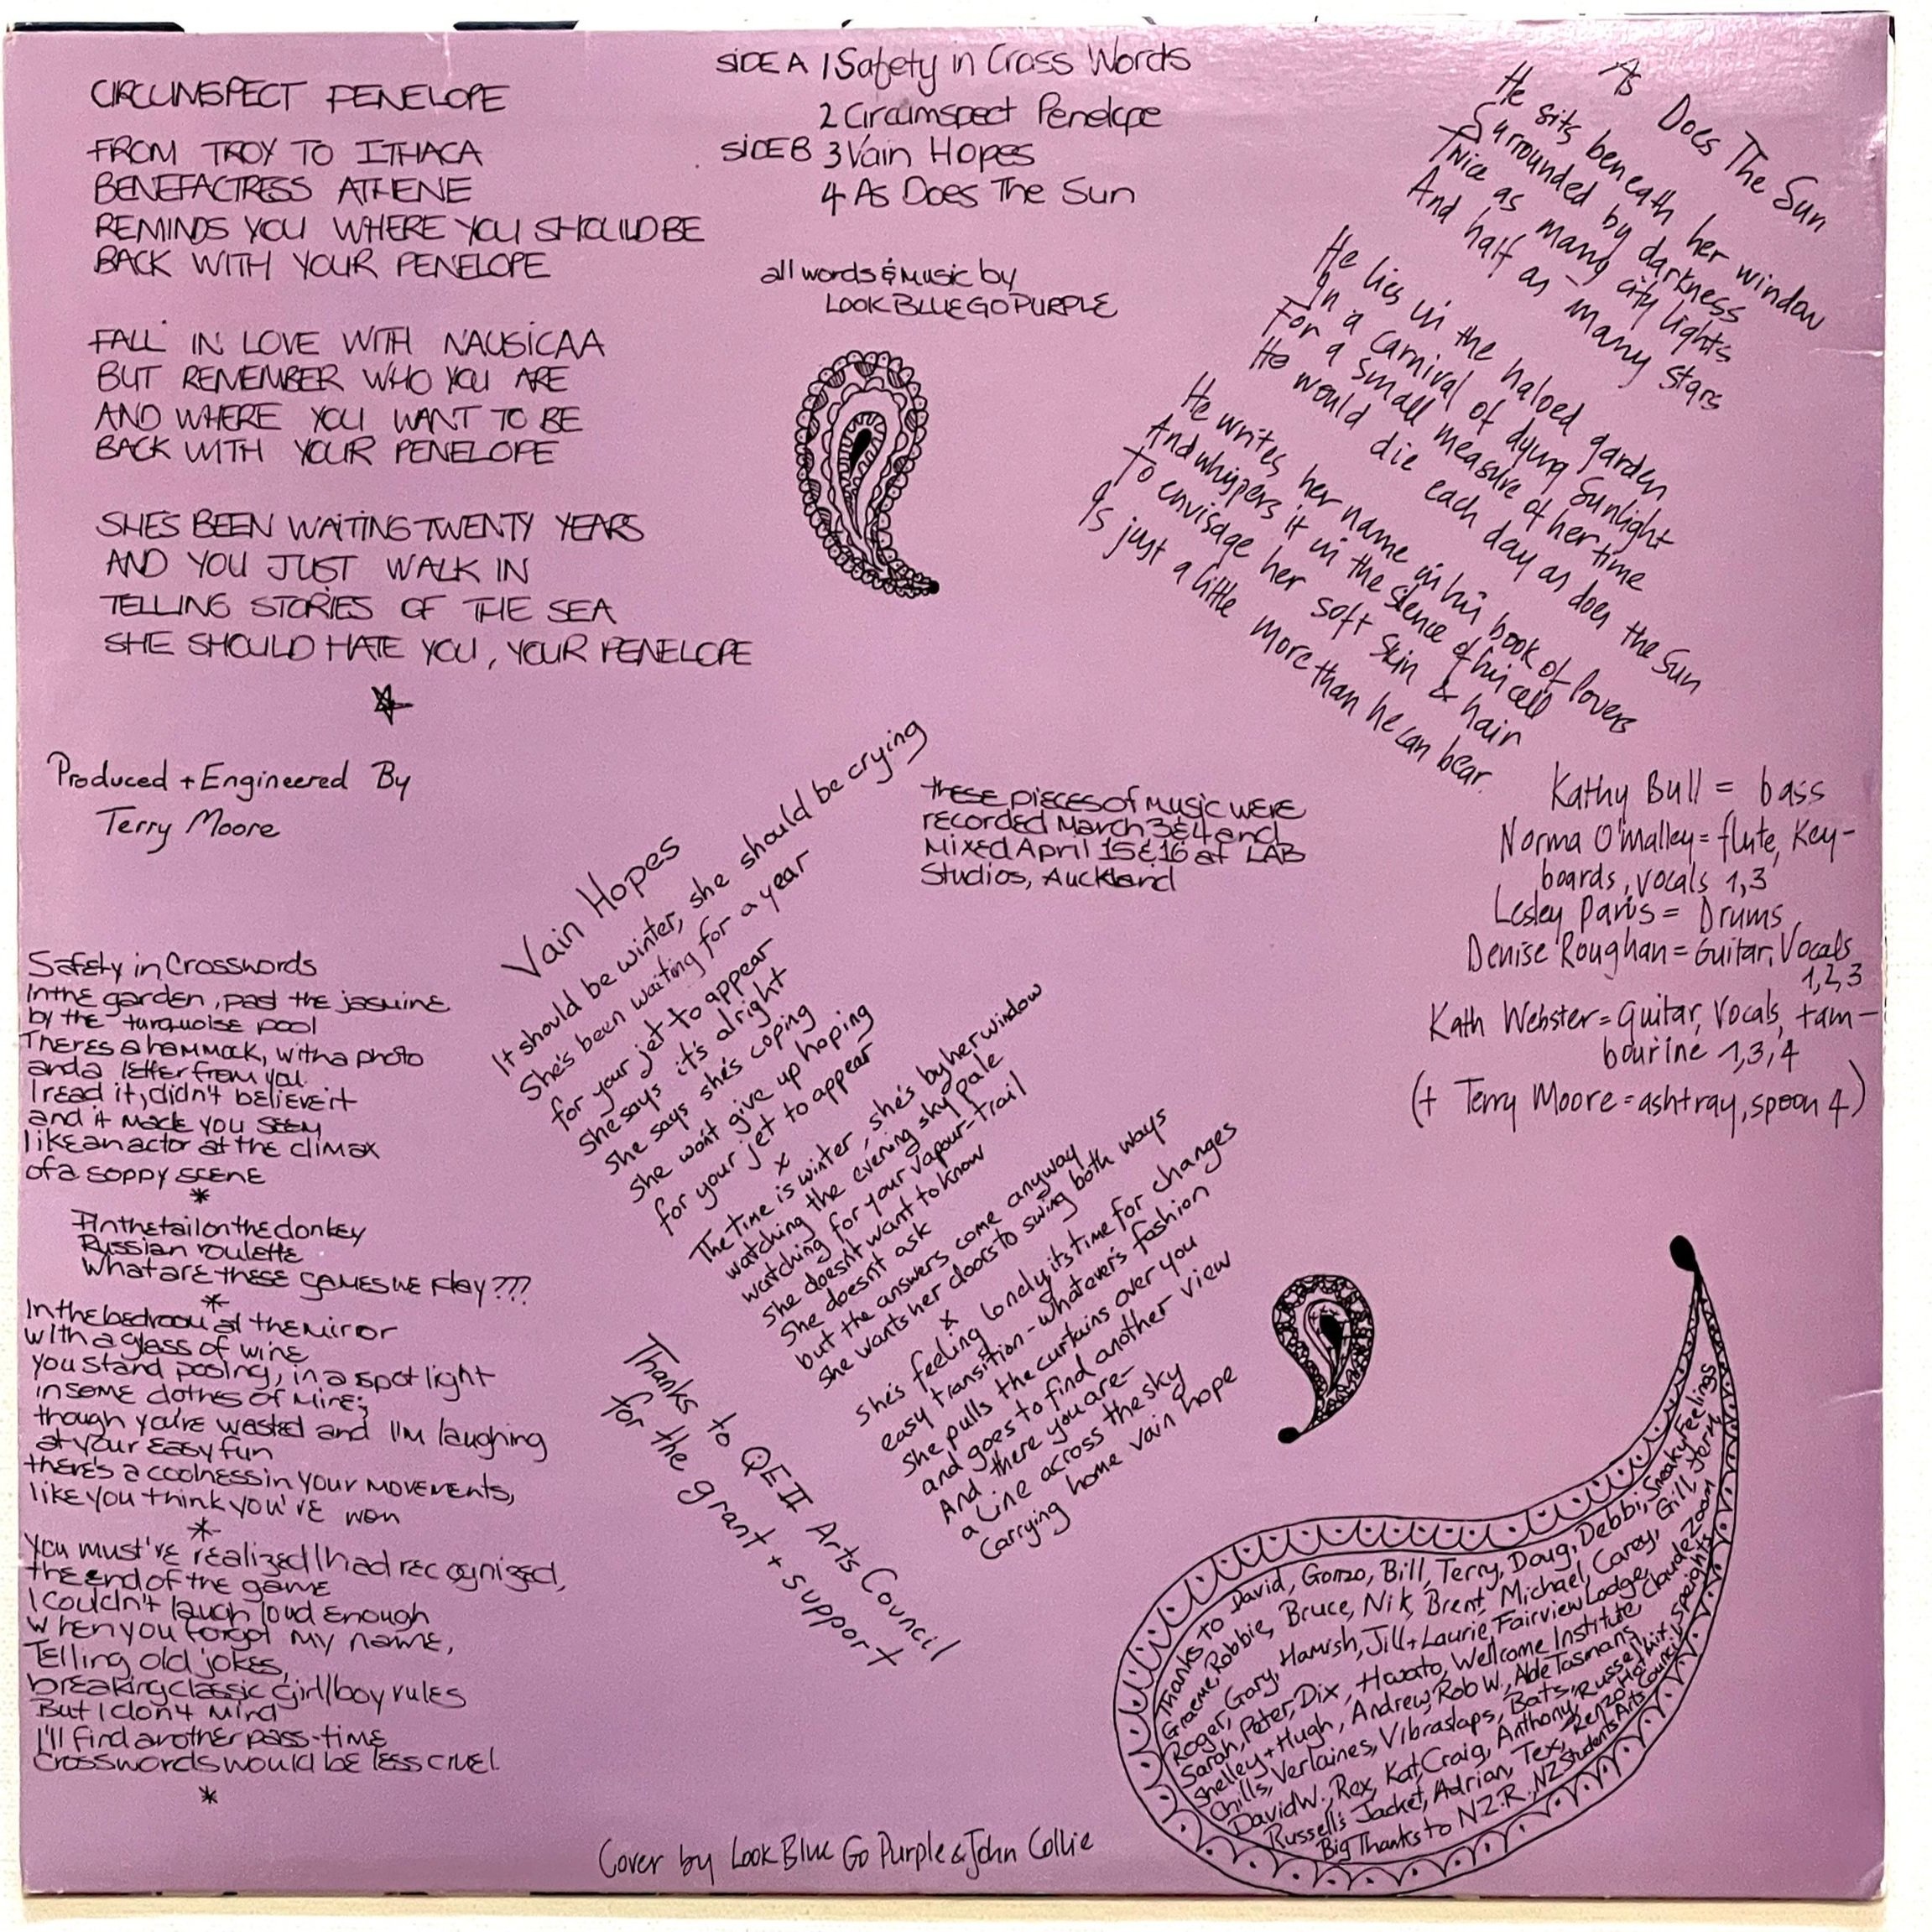 CIRCUMSPECT PENELOPE
FROM TROY TO ITHACA
BENEFACTRESS ATHENE
REMINDS YOU WHERE YOU SHOULD BE
BACK WITH YOUR PENELOPE
FALL IN LOVE WITH NAUSICAA
BUT REMEMBER WHO YOU ARE
AND WHERE YOU WANT TO BE
BACK WITH YOUR PENELOPE
SHE'S BEEN WAITING TWENTY YEARS
AND YOU JUST WALK IN
TELLING STORIES OF THE SEA
SHE SHOULD HATE YOU, YOUR PENELOPE
SIDE A 1 Safety in Cross Words
2 Circumspect Penelope
SIDE B 3 Vain Hopes
4 As Does The Sun
all words & music by
LOOK BLUE GO PURPLE
As Does The Sun
He sits beneath her window
Surrounded by darkness
Twice as many city lights
And half as many stars
He lies in the haloed garden
In a carnival of dying sunlight
For a small measure of her time
He would die each day as does the Sun
He writes her name in his book of lovers
And whispers it in the silence of his cell
To envisage her soft skin & hair
Is just a little more than he can bear.
Produced + Engineered By
Terry Moore
These pieces of music were
recorded March 3 & 4 and
Mixed April 15 & 16 at LAB
Studios, Auckland
Kathy Bull = bass
Norma O'Malley = flute, Key-
boards, vocals 1,3
Lesley Paris = Drums
Denise Roughan = Guitar, Vocals
1,2,3
Kath Webster = Guitar, Vocals, tam-
bourine 1,3,4
(+ Terry Moore = ashtray, spoon 4)
Vain Hopes
It should be winter, she should be crying
She's been waiting for a year
for your jet to appear
She says it's alright
She says she's coping
She won't give up hoping
for your jet to appear
x
The time is winter, she's by her window
watching the evening sky pale
watching for your vapour-trail
She doesn't want to know
She doesn't ask
but the answers come anyway
She wants her doors to swing both ways
x
She's feeling lonely, its time for changes
easy transition - whatever's fashion
She pulls the curtains over you
and goes to find another view
And there you are -
a line across the sky
Carrying home vain hope
Safety in Crosswords
In the garden, past the jasmine
by the turquoise pool
Theres a hammock, with a photo
and a letter from you.
I read it, didn't believe it
and it made you seem
like an actor at the climax
of a soppy scene
*
Pin the tail on the donkey
Russian roulette
What are these games we play???
*
In the bedroom at the mirror
with a glass of wine
you stand posing, in a spot light
in some clothes of mine;
though you're wasted and I'm laughing
at your easy fun
there's a coolness in your movements,
like you think you've won
*
You must've realized I had recognised,
the end of the game
I couldn't laugh loud enough
when you forgot my name,
Telling old jokes,
breaking classic girl/boy rules
But I don't mind
I'll find another pass-time
Crosswords would be less cruel.
*
Thanks to QEII Arts Council
for the grant + support
Thanks to David, Gonzo, Bill, Terry, Doug, Debbi, Sneaky Feelings
Graeme, Robbie, Bruce, Nik, Brent, Michael, Carey, Gill, Jerry
Roger, Gary, Hamish, Jill + Laurie, Fairview Lodge,
Sarah, Peter, Dix, Hwato, Wellcome Institute, Claude, Zoom
Shelley + Hugh, Andrew, Rob W., Able Tasmans
Chills, Verlaines, Vibraslaps, Bats,
David W., Rex, Kat, Craig, Anthony, Russell
Russell's Jacket, Adrian, Tex, Renzo
Big Thanks to N.Z.R., NZ Students Arts Council
Cover by Look Blue Go Purple & John Collie